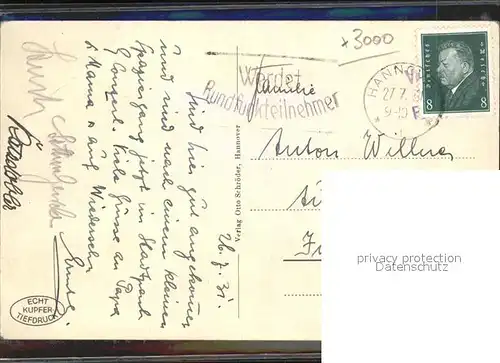 x3000
Werdet
Rundfunkteilnehmer
HANNO
27.7.
9-10
Deutsches Reich
8 8
Familie
Anton Willner
Verlag Otto Schröder, Hannover
26.7.31.
Sind hier gut angekommen
und sind nach einem kleinen
Spaziergang jetzt im Stadtpark
z. Conzert. Viele Grüsse an Papa
u. Mama u. auf Wiedersehn
ECHT
KUPFER
TIEFDRUCK
privacy protection
Datenschutz